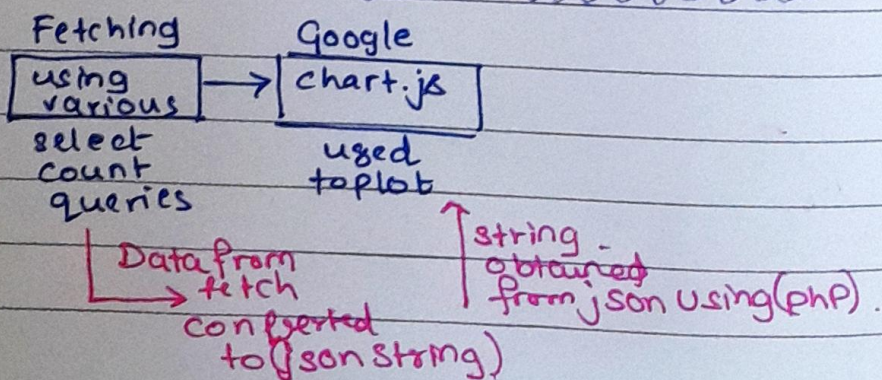 Fetching
using
various
select
count
queries
Google
chart.js
used
to plot
Data from
fetch
converted
to (json string)
string
obtained
from json using (php).